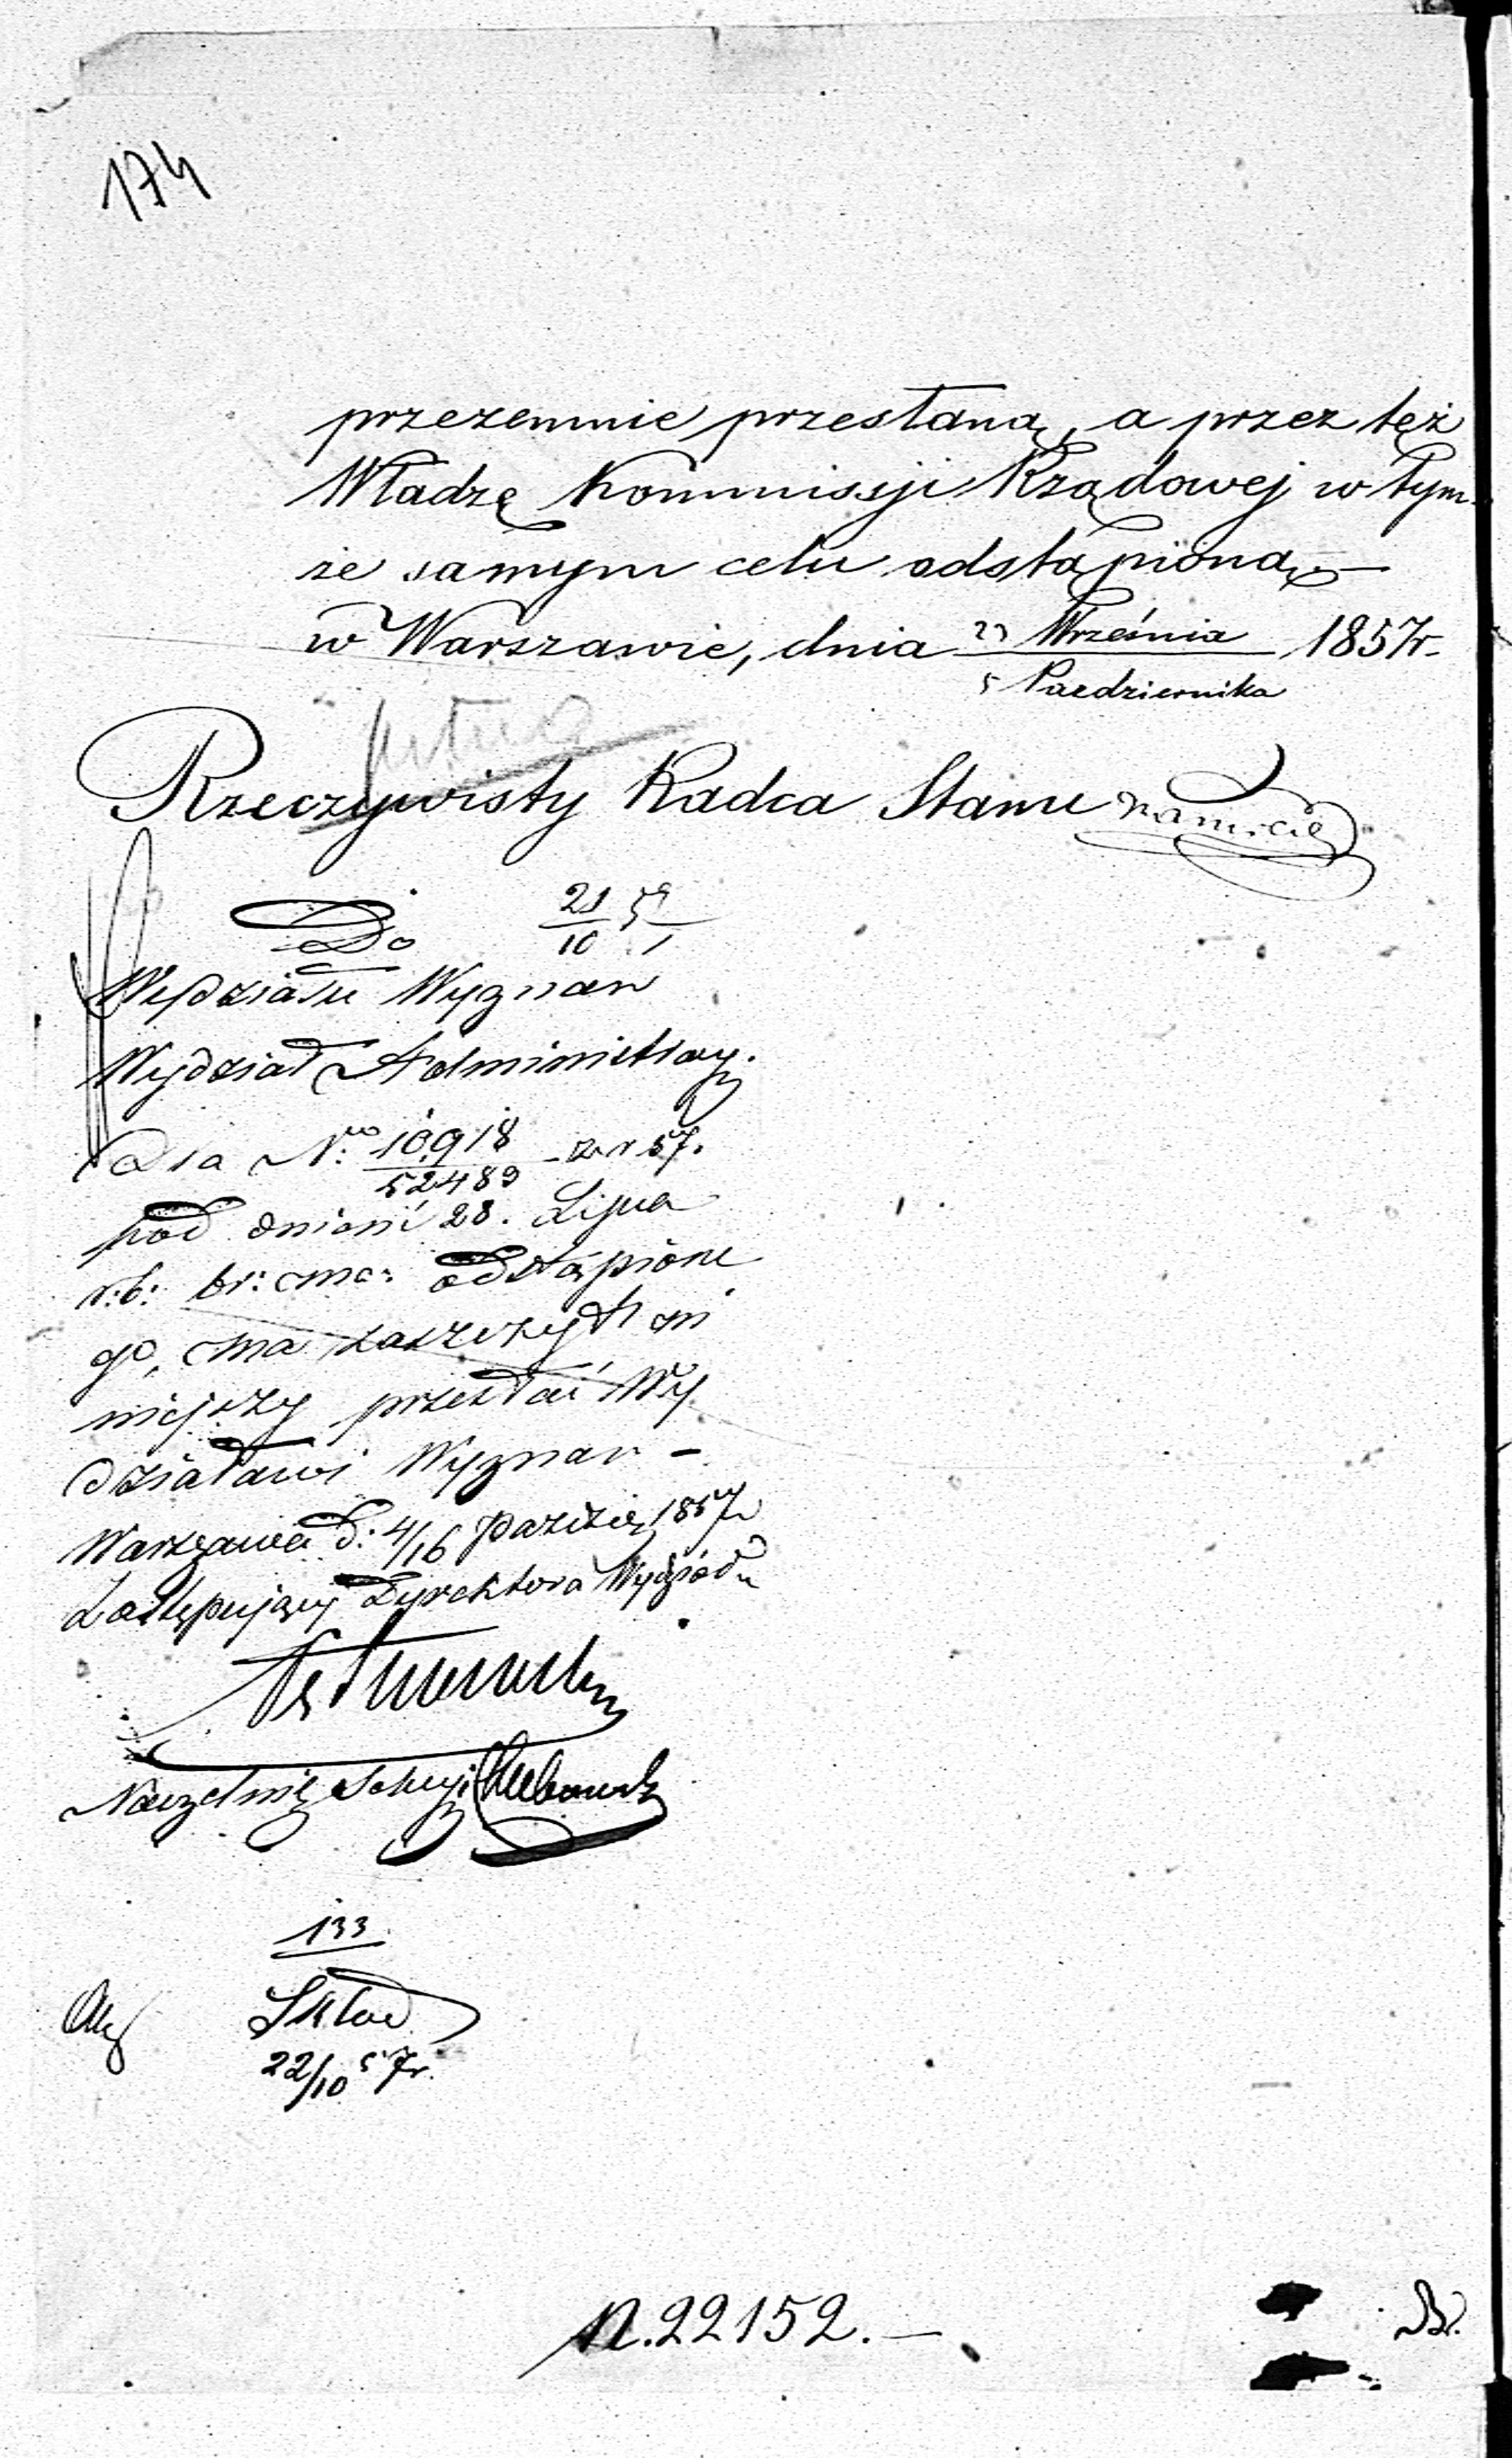 174
przezemnie przesłaną, a przez też
Władzę Kommissji Rządowej w tym
że samym celu odstąpioną.—
w Warszawie, dnia 23 Września 1857r.
5 Pazdziernika
Rzeczywisty Radca Stanu
Do
21
10
Wydziału Wyznań
Wydział Administracy.
Dla No: 10,918 z r 57.
52489
pod dniem 28. Lipca
r: b: br: ma: odstąpione
go, ma zaszczyt ni
niejszy przesłać Wy
działowi Wyznań -
Warszawa d: 4/16 Paździe 1857r
Zastępujący Dyrektora Wydziału
Naczelnik Sekcyi
133
Skład
22/10 57r.
N. 22152.—